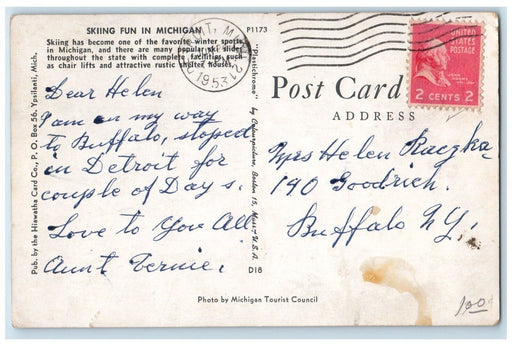 SKIING FUN IN MICHIGAN
P1173
Skiing has become one of the favorite winter sports
in Michigan, and there are many popular ski slides
throughout the state with complete facilities such
as chair lifts and attractive rustic shelter houses.
Dear Helen
I am on my way
to Buffalo, stoped
in Detroit for
couple of Days.
Love to You All
Aunt Vernie.
Pub. by the Hiawatha Card Co., P. O. Box 56, Ypsilanti, Mich.
"Plastichrome" by Colourpicture, Boston 15, Mass., U.S.A.
D18
MICH.
1953
UNITED
STATES
POSTAGE
JOHN
ADAMS
2 CENTS 2
Post Card
ADDRESS
Mrs Helen Raczka
190 Goodrich.
Buffalo N.Y.
Photo by Michigan Tourist Council
1.00